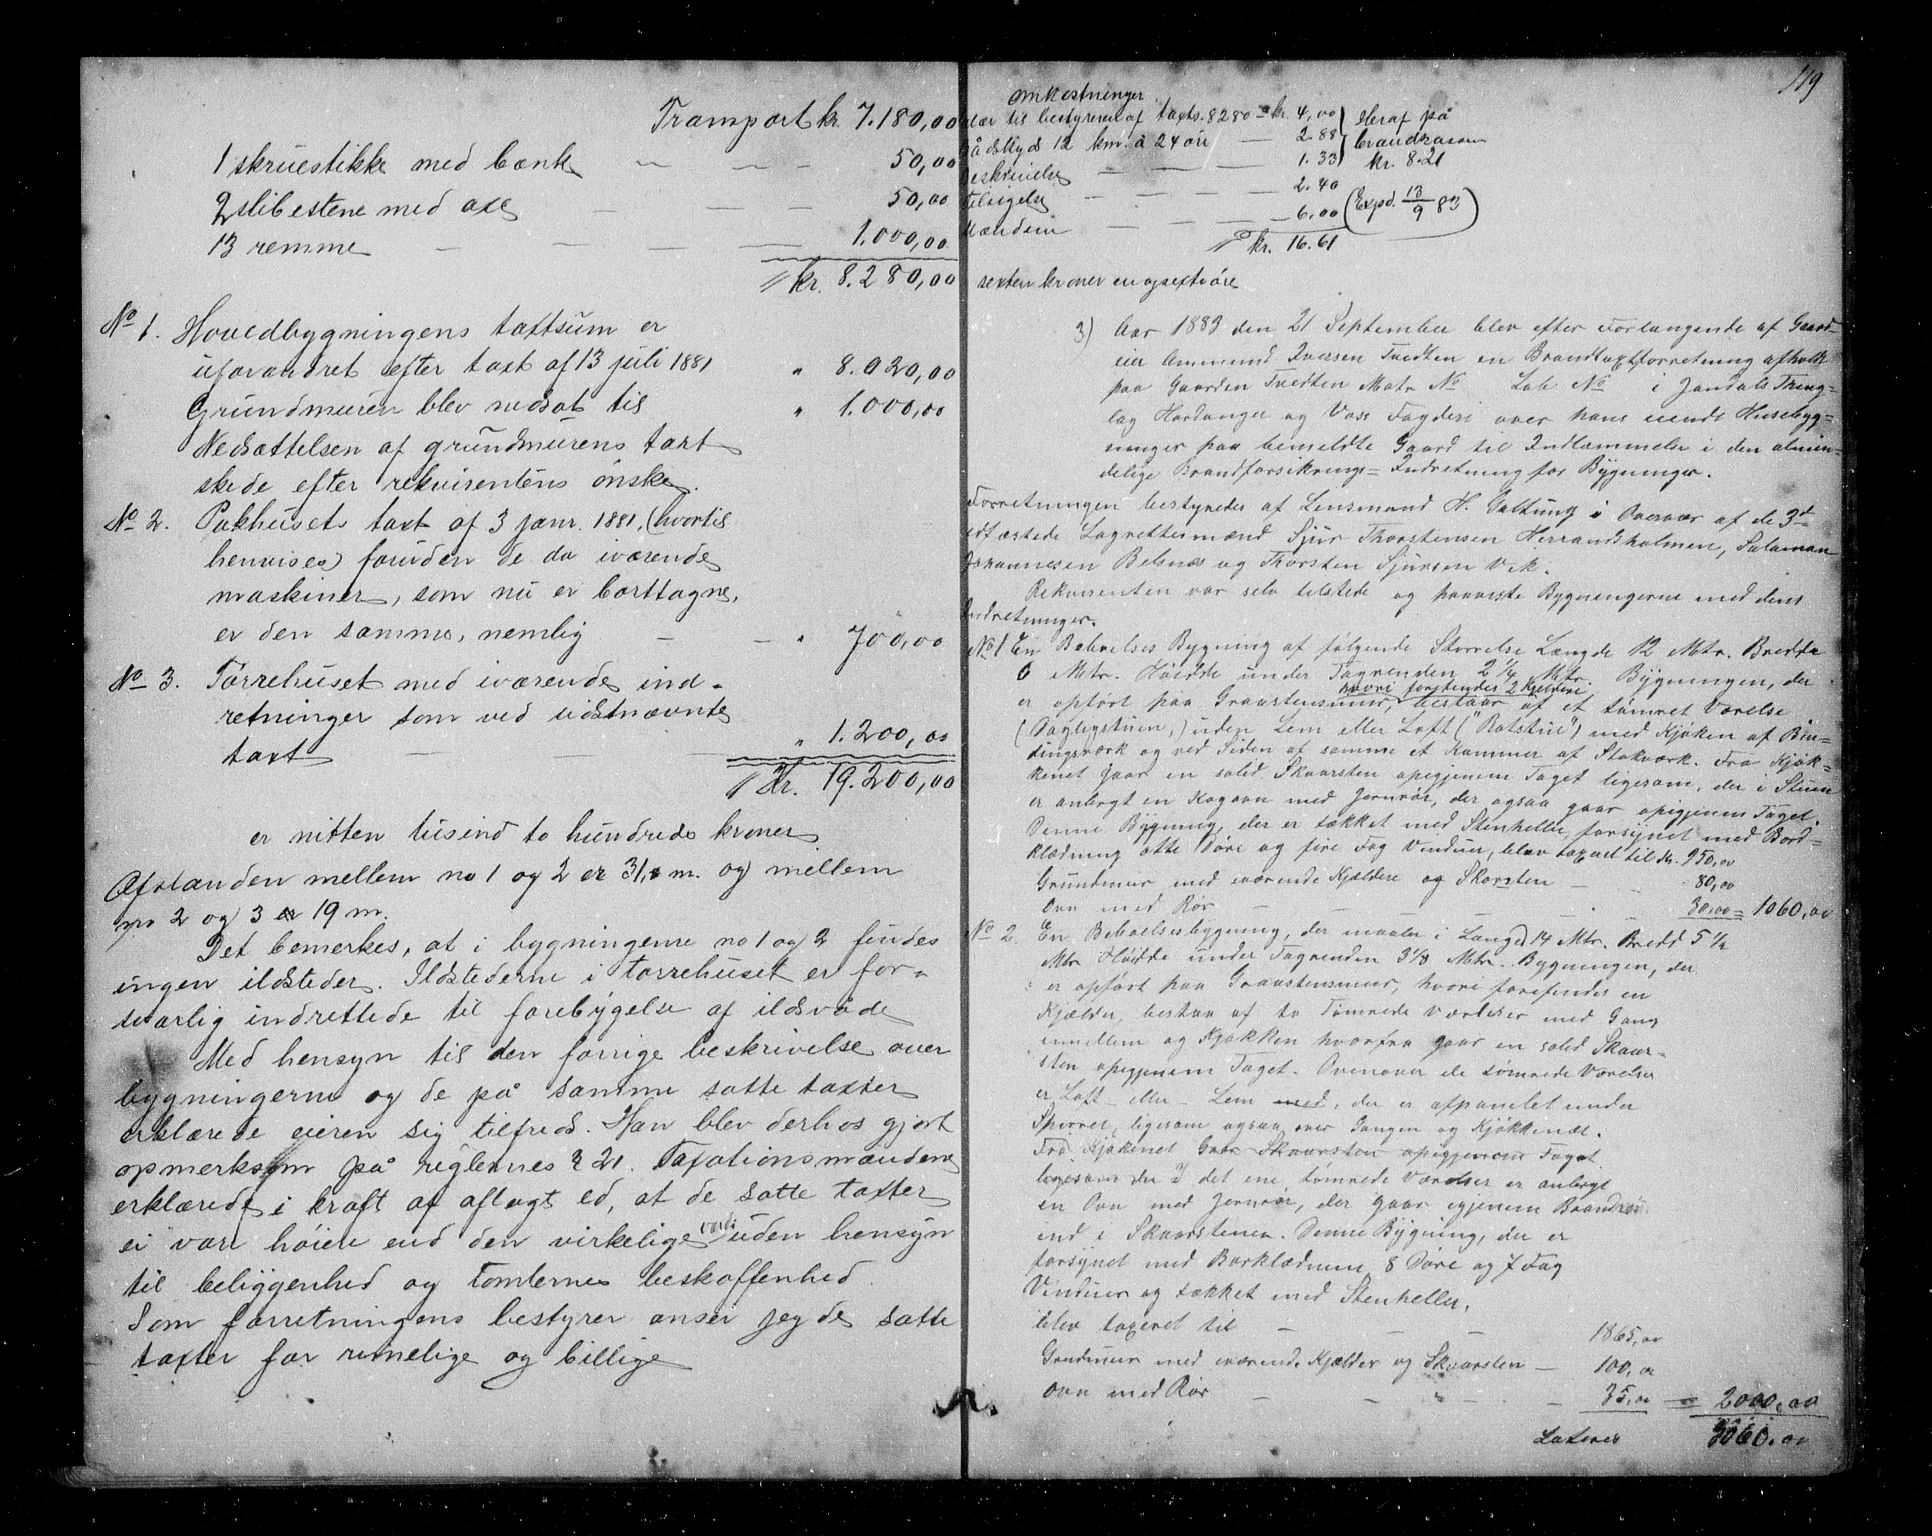 Transport kr. 7.180,00
1 skruestikke med bænk — — — 50,00
2 slibestene med axe — — — 50,00
13 remme — — — — 1.000,00
kr. 8.280,00
No 1. Hovedbygningens taktsum er
uforandret efter taxt af 13 juli 1881 " 8.020,00
Grundmuren blev nedsat til " 1.000,00
Nedsættelsen af grundmurens taxt
skede efter rekvirentens ønske.
No 2. Pakhusets taxt af 3 janr. 1881, (hvortil
henvises) foruden de da iværende
maskiner, som nu er borttagne,
er den samme, nemlig — — " 700,00
No 3. Tørrehuset med iværende ind-
retninger som ved sidstnævnte
taxt — — " 1.200,00
Kr. 19.200,00
er nitten tusind to hundrede kroner
Afstanden mellem no 1 og 2 er 31,8 m. og mellem
no 2 og 3 er 19 m.
Det bemerkes, at i bygningerne no 1 og 2 findes
ingen ildsteder. Ildstederne i tørrehuset er for-
svarlig indrettede til forebygelse af ildsvåde
Med hensyn til den forrige beskrivelse over
bygningerne og de på samme satte taxter
erklærede eieren sig tilfreds. Han blev derhos gjort
opmerksom på reglernes § 21. Taxationsmændene
erklærede i kraft af aflagt ed, at de satte taxter
ei vare høiere end den virkelige værdi uden hensyn
til beliggenhed og tomternes beskaffenhed.
Som forretningens bestyrer anser jeg de satte
taxter for rimelige og billige
119
Omkostninger
til bestyreren af taxts. 8280 = kr. 4,00 deraf på
12 km. à 24 øre — 2.88 brandkassen
Beskrivelse — — — 1.33 kr. 8.21
tilsigelse — — — 2.40
Mændene — — — 6,00 (Expd. 13/9 83)
kr. 16.61
sexten kroner en og sexti øre
3) Aar 1883 den 21 September blev efter Forlangende af Gaard-
eier Ammund Iversen Tvedten en Brandtaxtforretning afholdt
paa Gaarden Tvedten Matr No Løb No i Jondals Thing-
lag Hardanger og Voss Fogderi over hans eiende Husebyg-
ninger paa bemeldte Gaard til Indlemmelse i den almin-
delige Brandforsikrings-Indretning for Bygninger.
Forretningen bestyredes af Lensmand H. Gattung i Overvær af de 3de
edfæstede Lagrettesmænd Sjur Thorstensen Herrandsholmen, Salamon
Johannesen Belsnæs og Thorsten Sjursen Vik.
Rekvirenten var selv tilstede og paaviste Bygningerne med deres
Indretninger.
No 1 En Beboelses Bygning af følgende Størrelse Længde 12 Mtr. Bredde
6 Mtr. Høidde under Tagrenden 2 1/4 Mtr. Bygningen, der
er opført paa Graastensmuur, hvori forefindes 2 Kjeldere bestaar af et tømret Værelse
(Dagligstuen,) uden Lem eller Loft ("Røtstue") med Kjøken af Bin-
dingsværk og ved Siden af samme et Kammer af Stokværk. Fra Kjøk-
kenet gaar en solid Skaarsten opigjenem Taget ligesom, der i Stuen
er anbragt en Kogovn med Jernrør, der ogsaa gaar opigjenem Taget.
Denne Bygning, der er tækket med Stenheller, forsynet med Bord-
klædning otte Døre og fire Fag Vinduer, blev taxeret til Kr. 950,00
Grundmur med iværende Kjældere og Skorsten — 80,00
Ovn med Rør — — — 30,00 = 1060,00
No 2. En Beboelsesbygning, der maaler i Længde 14 Mtr. Bredd 5 1/2
Mtr Høidde under Tagrenden 3 1/8 Mtr. Bygningen, der
er opført paa Graastensmuur, hvori forefindes en
Kjælder, bestaa af to Tømrede Værelser med Gang
imellem og Kjøkken hvorfra gaar en solid Skaar-
sten opigjenem Taget. Ovenover de tømrede Værelser
er Loft eller Lem med, der er afpanelet under
Sperret, ligesom ogsaa over Gangen og Kjøkkenet.
Fra Kjøkenet Gaar Skaarsten opigjenem Taget
ligesom der I det ene tømrede Værelser er anbragt
en Ovn med Jernrør, der gaar igjenem Brandmur
ind i Skaarstenen. Denne Bygning, der er
forsynet med Borklædning 8 Døre og 7 Fag
Vinduer og tækket med Stenheller,
blev taxeret til — — — 1865,00
Grundmur med iværende Kjælder og Skaarsten — 100,00
Ovn med Rør — — — 35,00 = 2000,00
Lateres 3060,00